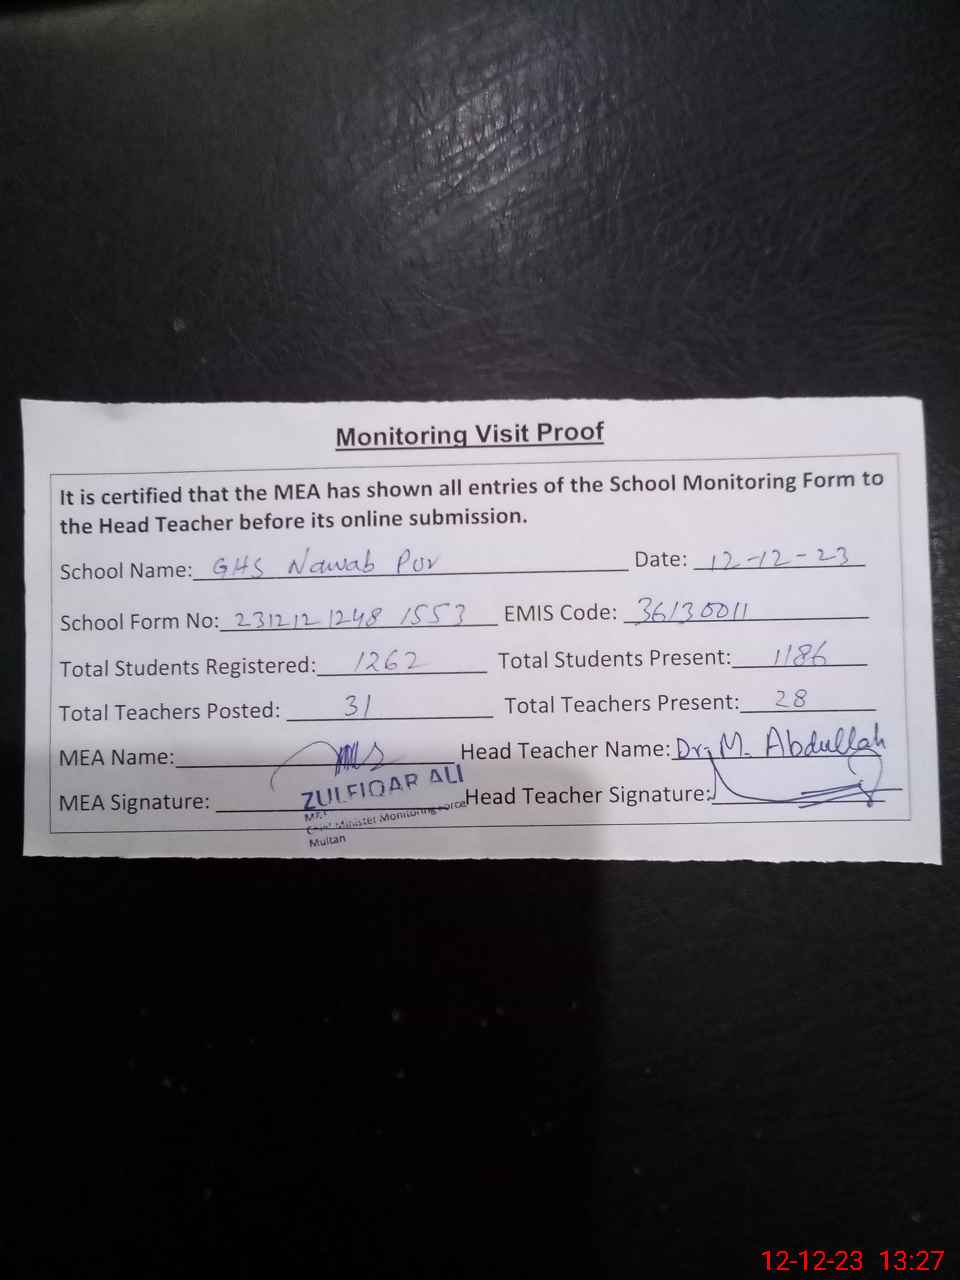 Monitoring Visit Proof
It is certified that the MEA has shown all entries of the School Monitoring Form to
the Head Teacher before its online submission.
School Name: GHS Nawab Pur Date: 12-12-23
School Form No: 231212 1248 1553 EMIS Code: 36130011
Total Students Registered: 1262 Total Students Present: 1186
Total Teachers Posted: 31 Total Teachers Present: 28
MEA Name: Head Teacher Name: Dr. M. Abdullah
MEA Signature: ZULFIQAR ALI Head Teacher Signature:
Chief Minister Monitoring Force
Multan
12-12-23 13:27